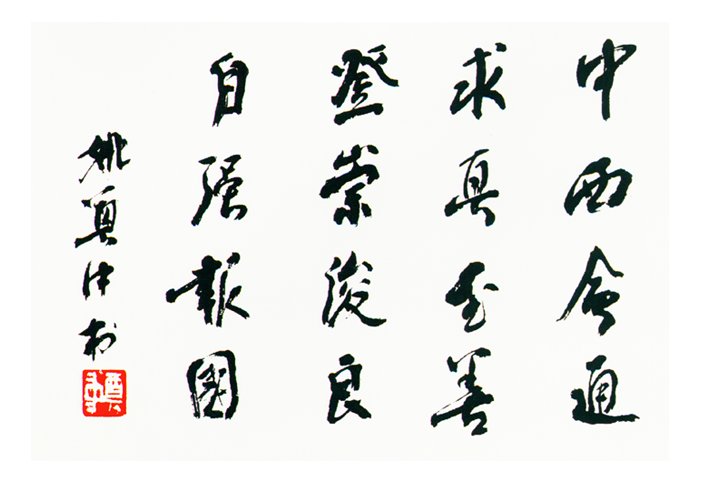 中西會通
求真至善
登崇俊良
自强報國
姚奠中书